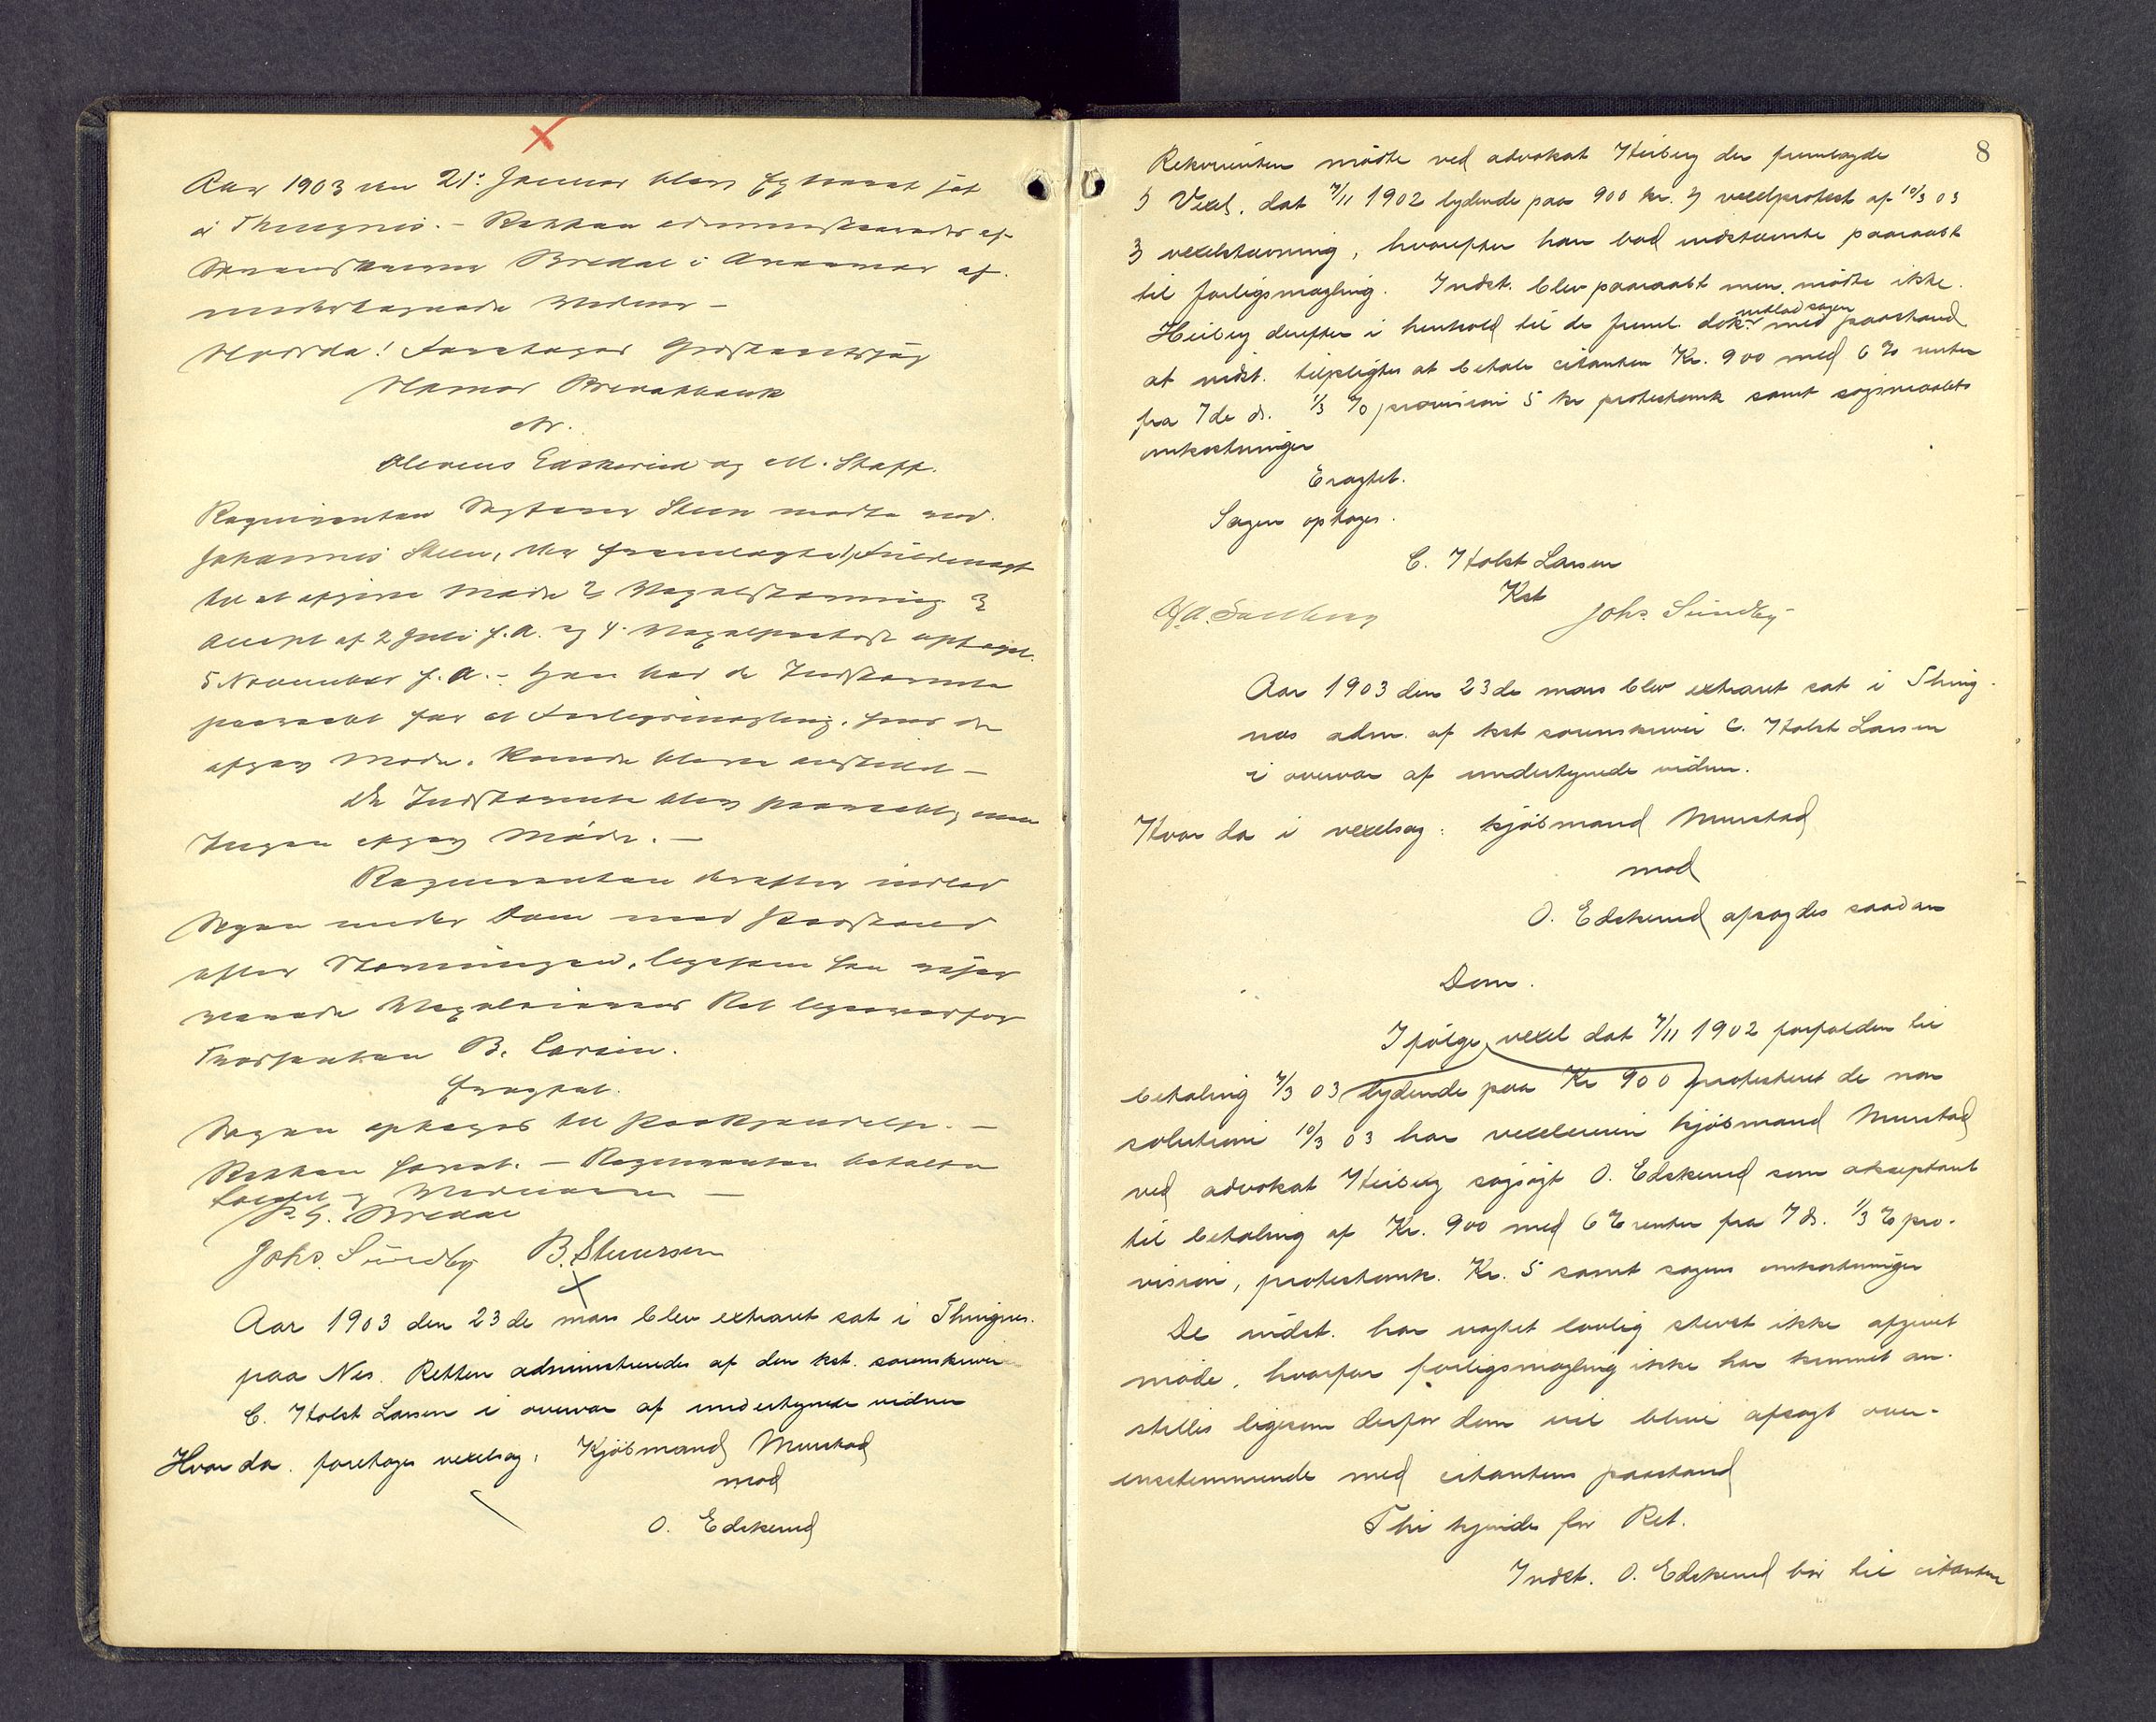 Aar 1903 den 21. Januar blev Extraret sat
i Thingnæs. - Retten administreredes af
Sorenskriver Bredal i Overvær af
undertegnede Vidner -
Hvorda! Foretoges Gjæsteretssag
Hamar Privatbank
ctr.
Olevius Edskerud og M. Staff.
Requirenten Sagfører Steen mødte ved
Johannes Steen, der fremlagde 1, Fuldmagt
til at afgive Møde 2 Vexelstævning 3
Accept af 2 Juli f.A. og 4. Vexelprotest optaget
5 November f. A. - Han bad de Indstævnte
paaraabt for at Forligsmægling, hvis de
afgav Møde, kunde blive anstillet -
De Indstævnte blev paaraabt, men
Ingen afgav Møde. -
Requirenten derefter indlod
Sagen under Dom med Paastand
efter Stævningen, ligesom han
Vexeleierens Ret ligeoverfor
B. Larsen.
Eragtet.
Sagen optages til Paakjendelse. -
Retten hævet. - Requirenten betalte
og Vidnerne -
Bredal
Johs. Sundby B. Stuursen
Aar 1903 den 23de mars blev extraret sat i Thingnes.
paa Nes. Retten administreredes af den kst. sorenskriver
C. Holst Larsen i overvær af undertegnede vidner
Hvor da foretoges vexelsag: Kjøbmand Mustad
mod
O. Edskerud
8
Rekvirenten mødte ved advokat Heiberg der fremlagde
1) Vexel, dat 7/11 1902 lydende paa 900 kr. 2) vexelprotest af 10/3 03
3) vexelstævning, hvorefter han bad indstævnte paaraabt
til forligsmægling. Indst. blev paaraabt men mødte ikke.
Heiberg derefter i henhold til de freml. dok.r indlod sagen med paastand
at indst. tilpligtes at betale citanten Kr. 900 med 6 % renter
fra 7de ds. 1/3 % provision 5 kr protestomk samt søgsmaalets
omkostninger
Eragtet.
Sagen optages.
C. Holst Larsen
Kst
Johs. Sundby
Aar 1903 den 23de mars blev extraret sat i Thing-
nes adm. af kst sorenskriver C. Holst Larsen
i overvær af undertegnede vidner.
Hvor da i vexelsag: kjøbmand Mustad
mod
O. Edskerud afsagdes saadan
Dom.
I følge vexel dat 7/11 1902 forfalden til
betaling 7/3 03 lydende paa Kr 900 protesteret de non
solutione 10/3 03 har vexeleieren kjøbmand Mustad
ved advokat Heiberg sagsøgt O. Edskerud som akseptant
til betaling af Kr. 900 med 6 % renter fra 7 ds. 1/3 % pro-
vision, protestomk. Kr. 5 samt sagens omkostninger
De indst. har uagtet lovlig stevnt ikke afgivet
møde, hvorfor forligsmægling ikke har kunnet an-
stilles ligesom derfor dom vil blive afsagt over-
ensstemmende med citantens paastand
Thi kjendes for Ret.
Indst. O. Edskerud bør til citanten